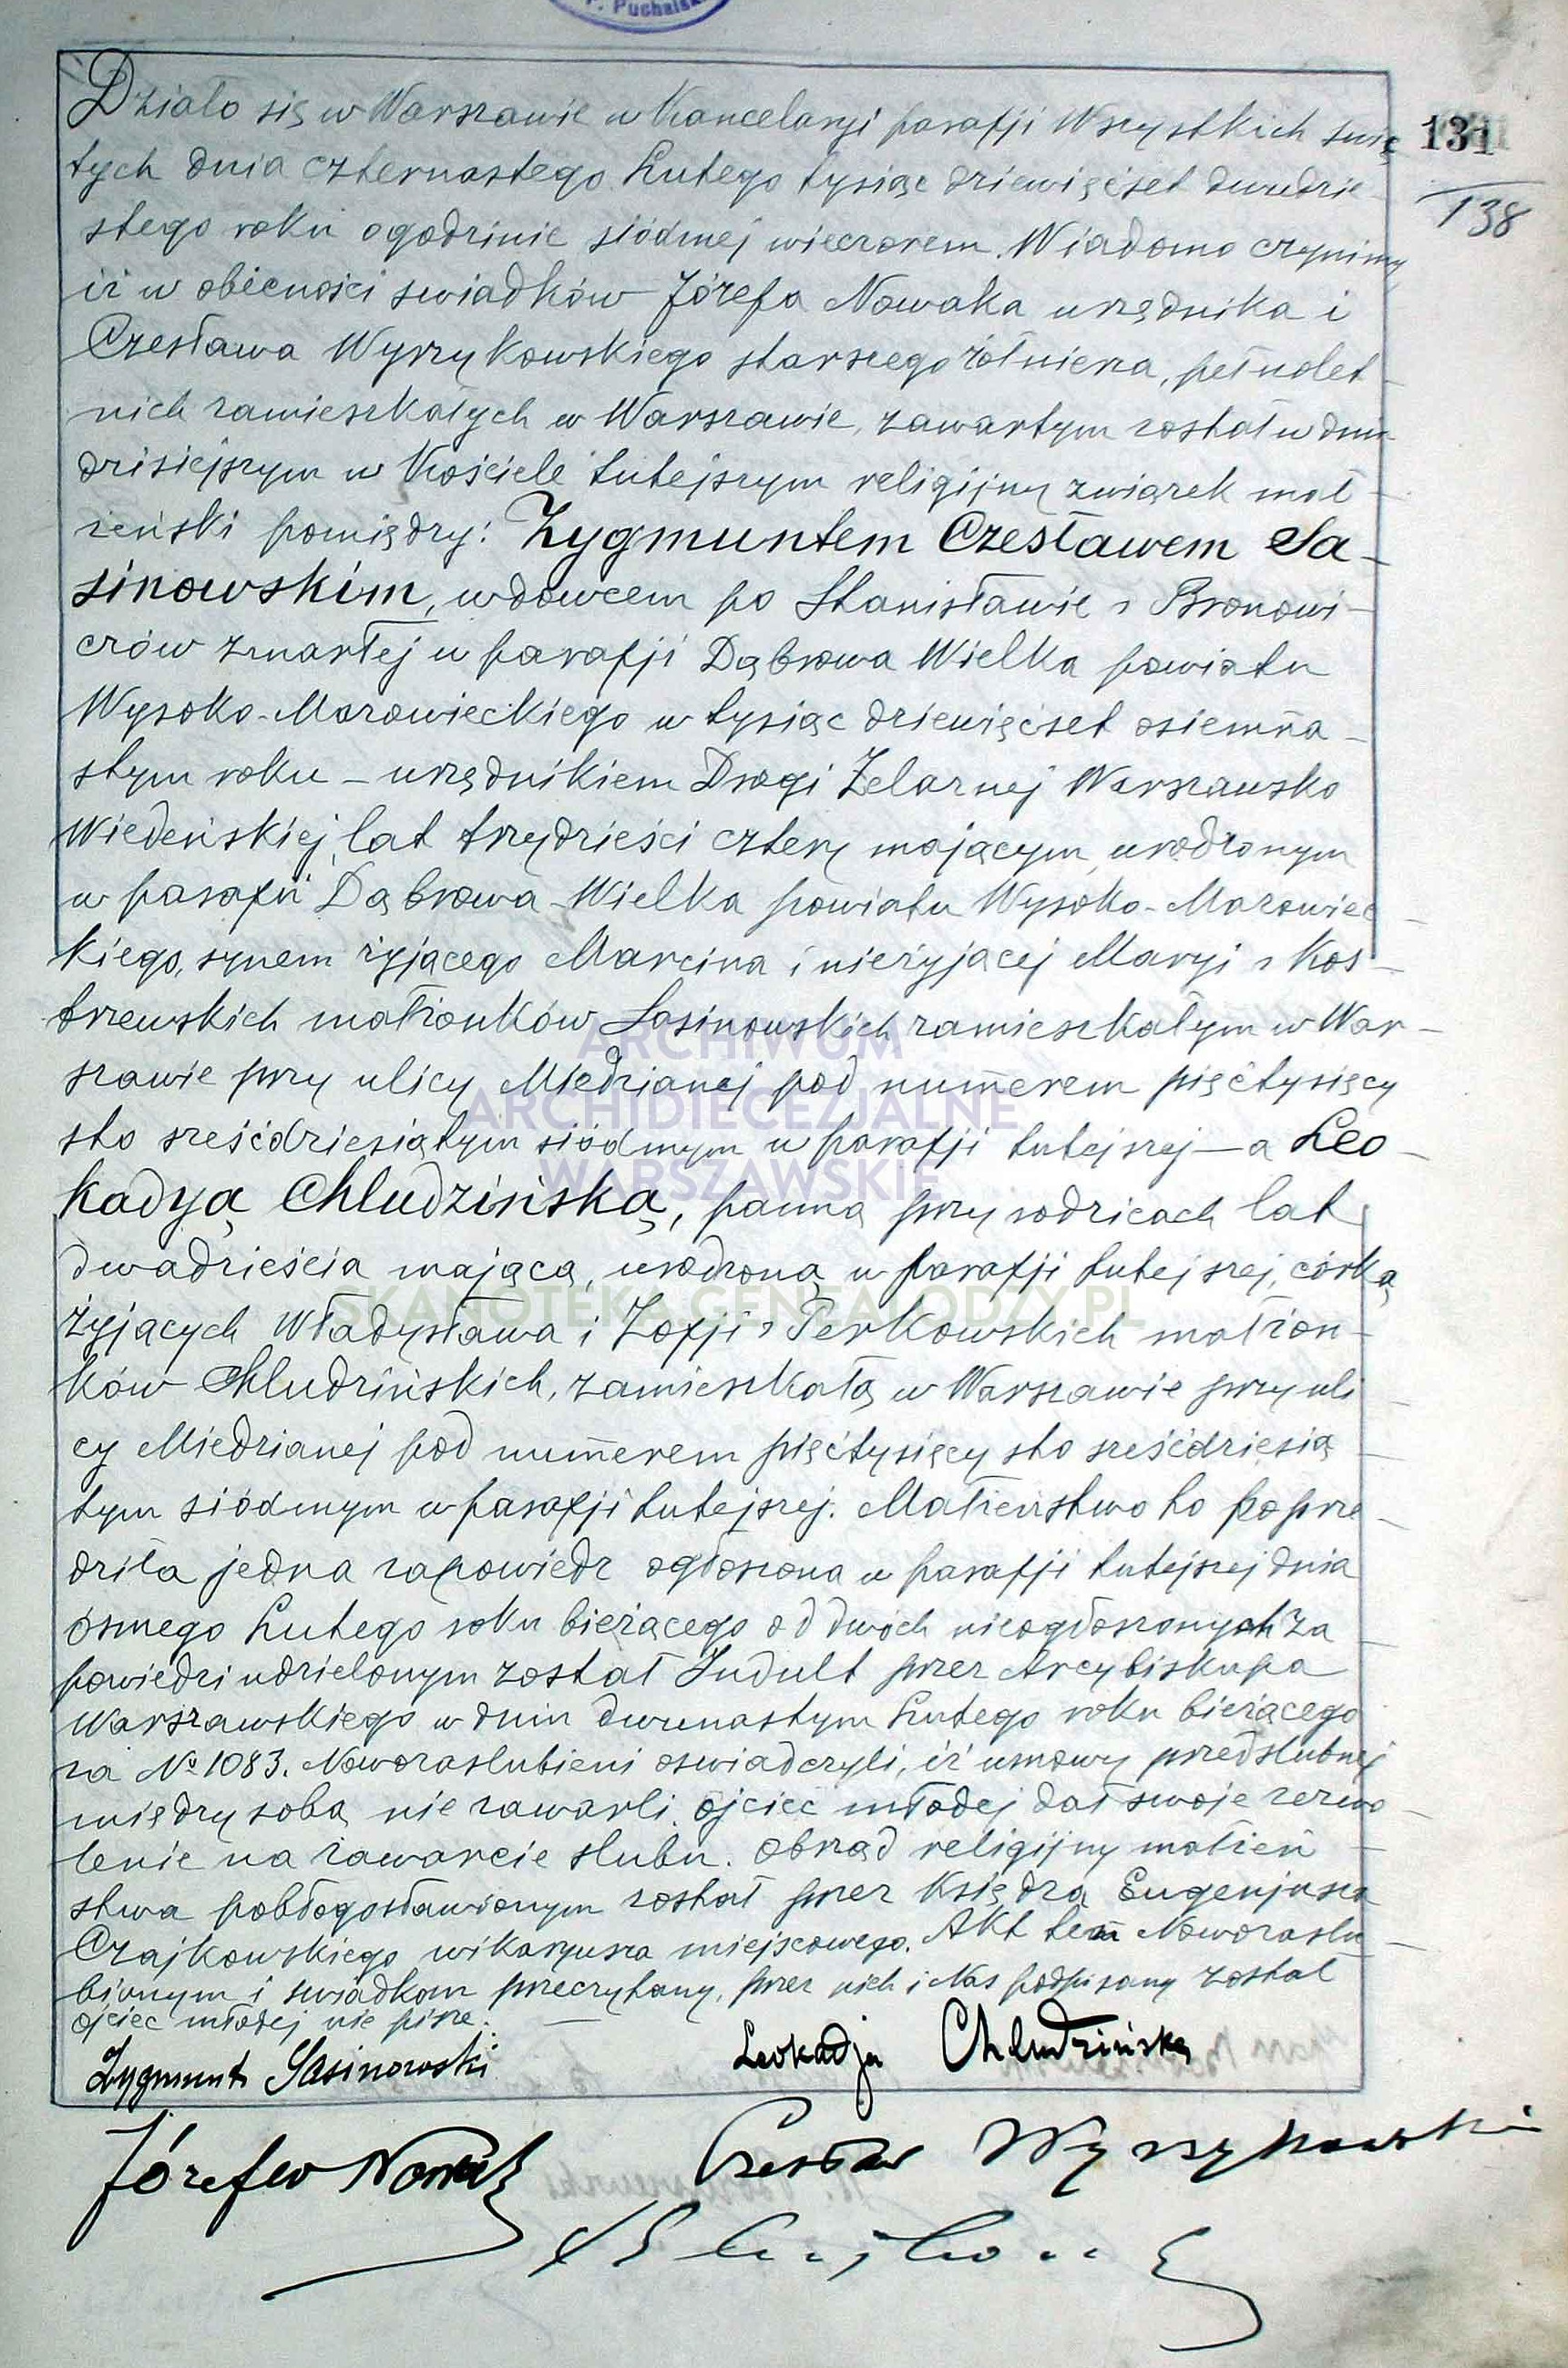 P. Puchalski
131
138
Działo się w Warszawie w Kancelaryi parafji Wszystkich Swię
tych dnia czternastego Lutego tysiąc dziewięćset dwudzie
stego roku o godzinie siódmej wieczorem. Wiadomo czynimy,
iż w obecności swiadków Józefa Nowaka urzędnika i
Czesława Wyrzykowskiego starszego żołnierza, pełnolet-
nich zamieszkałych w Warszawie, zawartym został w dniu
dzisiejszym w Kościele tutejszym religijny związek mał-
żeński pomiędzy: Zygmuntem Czesławem Sa-
sinowskim, wdowcem po Stanisławie z Bronowi-
czów zmarłej w parafji Dąbrowa Wielka powiatu
Wysoko-Mazowieckiego w tysiąc dziewięćset osiemna-
stym roku – urzędnikiem Drogi Żelaznej Warszawsko
Wiedeńskiej, lat trzydzieści cztery mającym, urodzonym
w parafii Dąbrowa-Wielka powiatu Wysoko-Mazowiec-
kiego, synem żyjącego Marcina i nieżyjącej Maryi z Kos-
trzewskich małżonków Sasinowskich zamieszkałym w War-
szawie przy ulicy Miedzianej pod numerem pięćtysięcy
sto sześćdziesiątym siódmym w parafji tutejszej – a Leo-
kadyą Chludzińską, panną przy rodzicach lat
dwadzieścia mającą, urodzoną w parafji tutejszej, córką
żyjących Władysława i Zofji z Perkowskich małżon-
ków Chludzińskich, zamieszkałą w Warszawie przy uli-
cy Miedzianej pod numerem pięćtysięcy sto sześćdziesią-
tym siódmym w parafji tutejszej. Małżeństwo to poprze-
dziła jedna zapowiedz ogłoszona w parafji tutejszej dnia
ósmego Lutego roku bieżącego od dwóch nieogłoszonych za-
powiedzi udzielonym został Indult przez Arcybiskupa
Warszawskiego w dniu dwunastym Lutego roku bieżącego
za № 1083. Nowozaslubieni oswiadczyli, iż umowy przedslubnej
między sobą nie zawarli. Ojciec młodej dał swoje zezwo-
lenie na zawarcie slubu. Obrząd religijny małżeń-
stwa pobłogosławionym został przez Księdza Eugenjusza
Czajkowskiego wikaryusza miejscowego. Akt ten Nowozaslu-
bionym i swiadkom przeczytany, przez nich i Nas podpisany został
ojciec młodej nie pisze. —
Zygmunt Sasinowski
Leokadja Chludzińska
Józefw Nowak
Czesław Wyrzykowski
ARCHIWUM
ARCHIDIECEZJALNE
WARSZAWSKIE
SKANOTEKA.GENEALODZY.PL